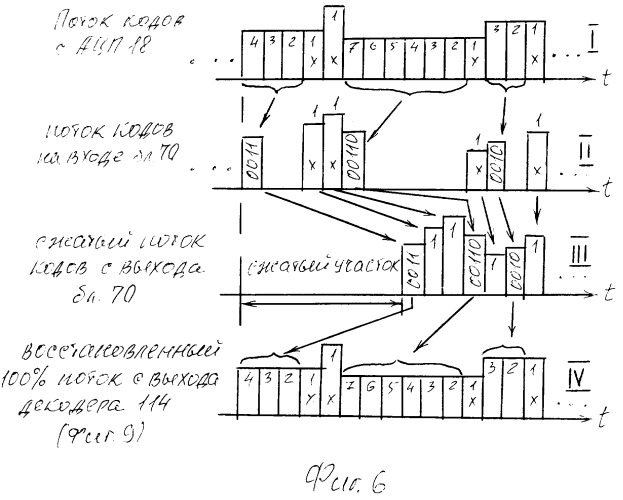 Поток кодов
с АЦП 18
4 3 2 1 x 1 x 7 6 5 4 3 2 1 x 3 2 1 x
I
t
поток кодов
на входе бл. 70
0011 1 x 1 x 00110 1 x 0010 1 x
II
t
сжатый поток
кодов с выхода
бл. 70
сжатый участок
0011 1 1 00110 1 0010 1
III
t
восстановленный
100% поток с выхода
декодера 114
(Фиг. 9)
4 3 2 1 x 1 x 7 6 5 4 3 2 1 x 3 2 1 x
IV
t
Фиг. 6